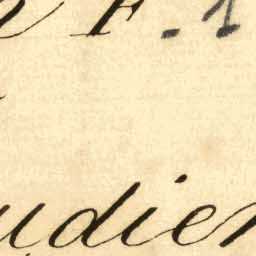 F. 1
udien